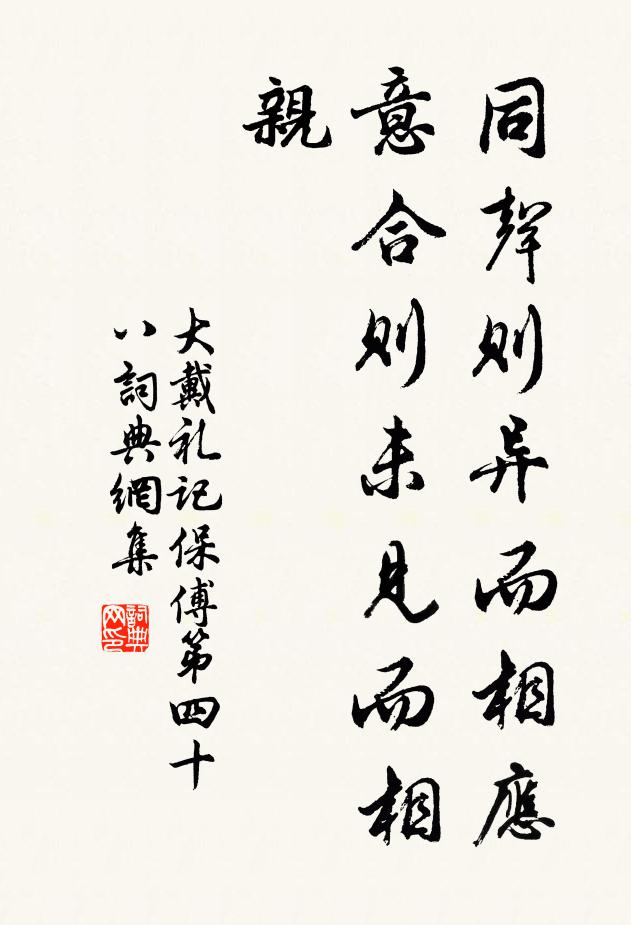 同聲则异而相應
意合则未見而相
親
大戴礼记保傅第四十
八詞典網集
詞典
网印